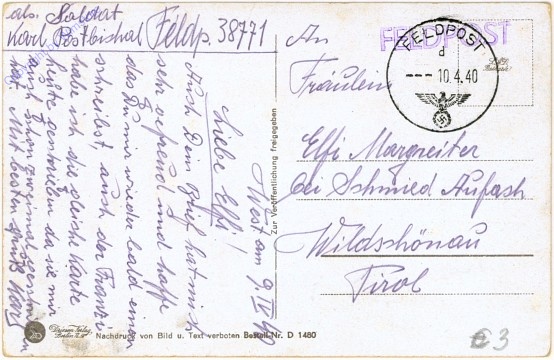 als. Soldat
Karl Postbichal Feldp. 38771
West am 9. IV. 40
Liebe Elfi!
Auch Dein Brief hat mich
sehr gefreud und hoffe
das Du mir wieder bald einen
schreibst, auch der Franzi
habe ich die gleiche Karte
heute geschrieben da sie mir
auch schon zweimal geschrieben
hat. Mit besten Gruß Karl
Zur Veröffentlichung freigegeben
Nachdruck von Bild u. Text verboten Bestell-Nr. D 1480
FELDPOST
FELDPOST
d
--- 10.4.40
An
Fräulein
Elfi Margreiter
bei Schmied Aufach
Wildschönau
Tirol
3